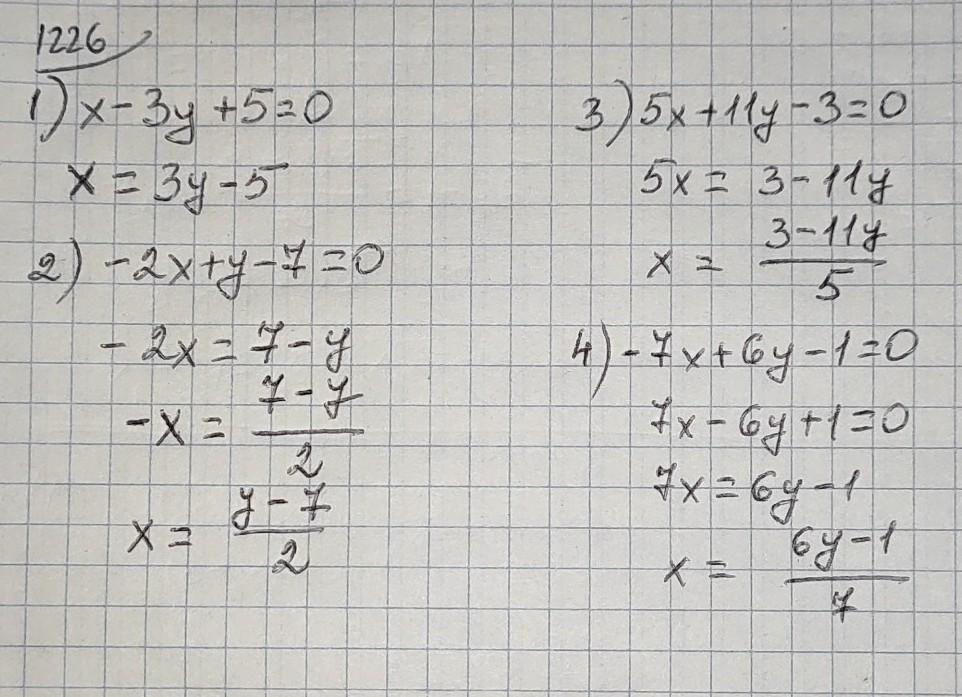 1226
1) x - 3y + 5 = 0
x = 3y - 5
2) -2x + y - 7 = 0
-2x = 7 - y
-x = (7 - y)/2
x = (y - 7)/2
3) 5x + 11y - 3 = 0
5x = 3 - 11y
x = (3 - 11y)/5
4) -7x + 6y - 1 = 0
7x - 6y + 1 = 0
7x = 6y - 1
x = (6y - 1)/7